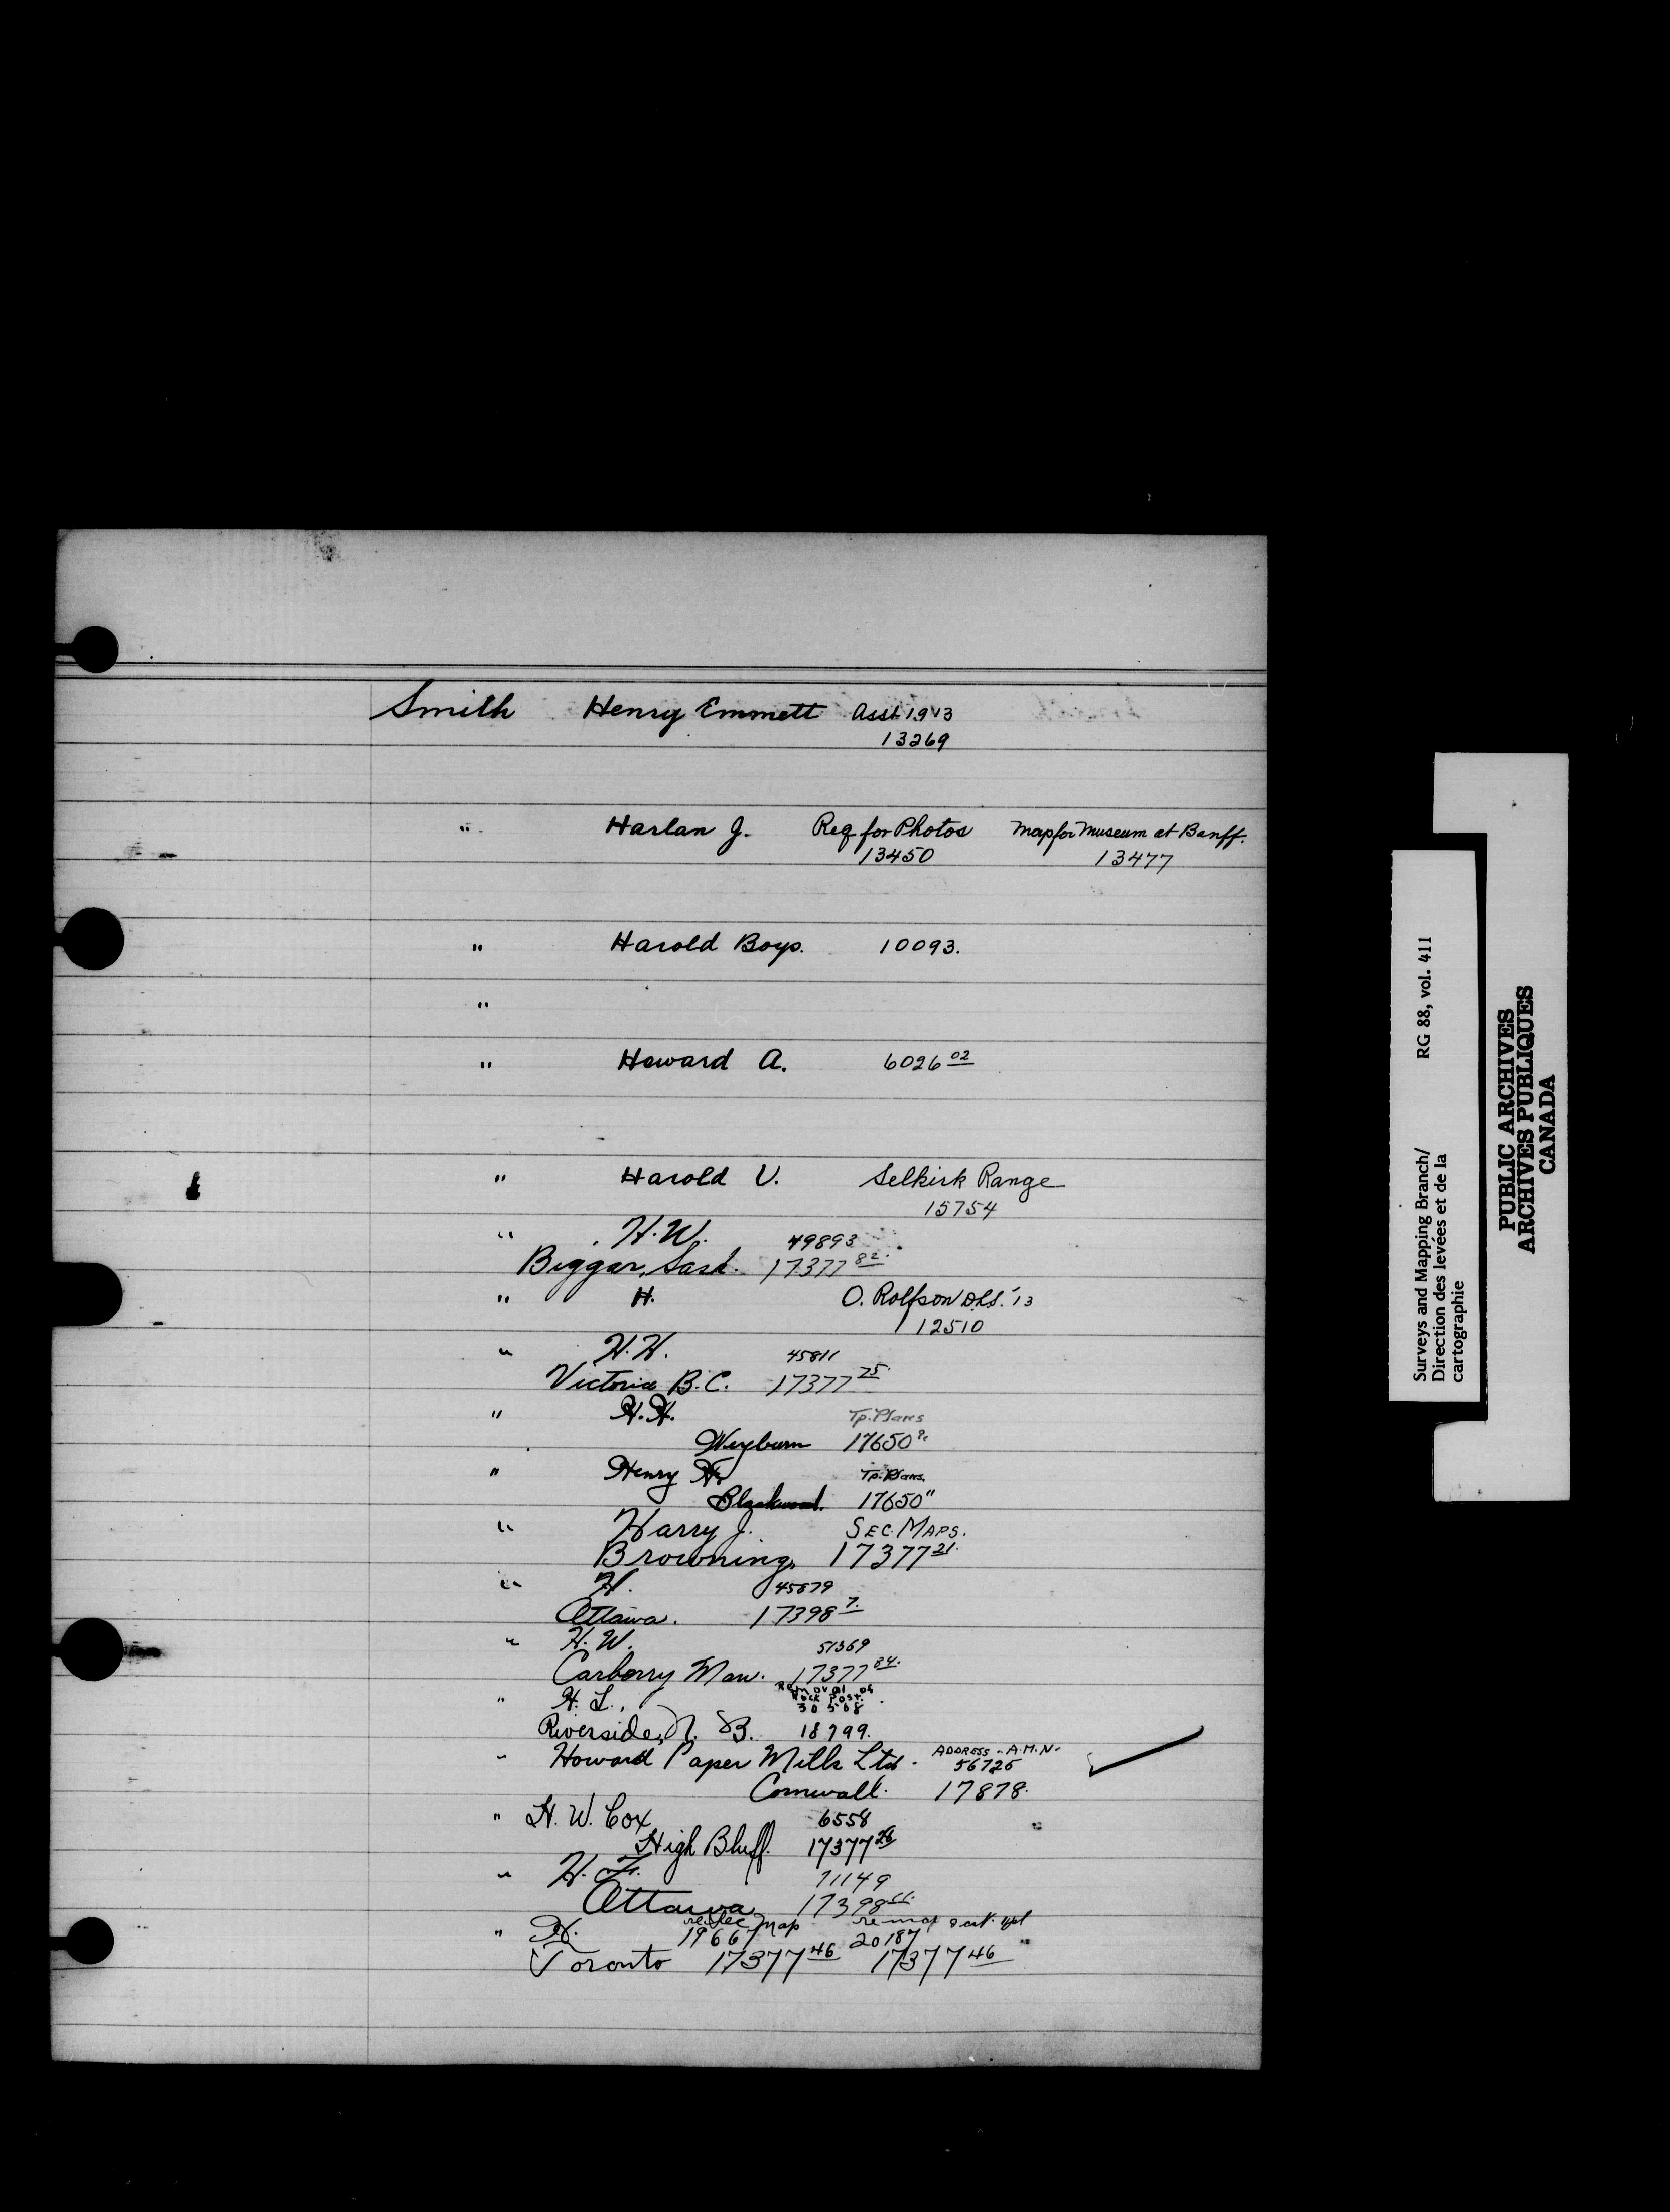 Smith Henry Emmett Asst 1913
13269
" Harlan J. Req for Photos Map for Museum at Banff.
13450 13477
" Harold Boys. 10093.
"
" Howard A. 6026 02
" Harold V. Selkirk Range
15754
" H.W. 49893
Biggar, Sask. 17377 82.
" H. O. Rolfson D.L.S. '13
12510
" H.H. 45811
Victoria B.C. 17377 75.
" H.H. Tp. Plans
Weyburn 17650
" Henry H. Tp. Plans.
Blackwood. 17650 "
" Harry J. SEC. MAPS.
Browning. 17377 21.
" H. 45879
Ottawa. 17398 7.
" H.W. 51369
Carberry Man. 17377 84.
" H. L., Removal of
Rock Post.
30568
Riverside, N. B. 18799.
" Howard Paper Mills Ltd. ADDRESS - A.M.N.
56725
Cornwall. 17878.
" H. W. Cox 6558
High Bluff. 17377 26
" H. F. 71149
Ottawa 17398
" H. re Sec Map re map
19667 20187
Toronto 17377 46 17377 46
Surveys and Mapping Branch/ RG 88, vol. 411
Direction des levées et de la
cartographie
PUBLIC ARCHIVES
ARCHIVES PUBLIQUES
CANADA